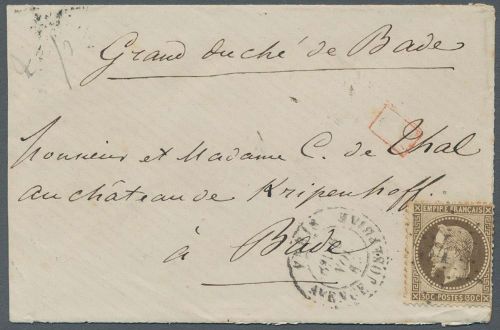 Grand duché de Bade
Monsieur et Madame C. de Thal
au château de Kripenhoff.
à Bade
EMPIRE FRANÇAIS
30C POSTES 30C
PARIS